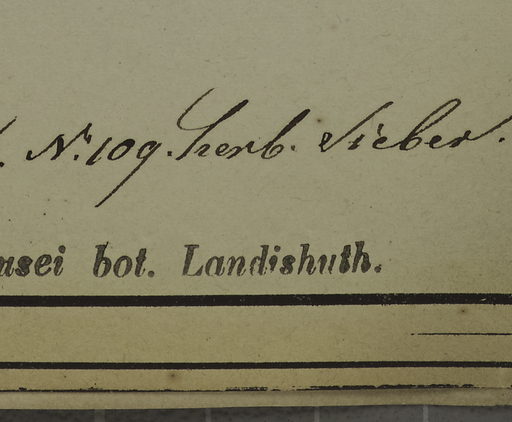 Nr. 109. Herb. Sieber.
usei bot. Landishuth.